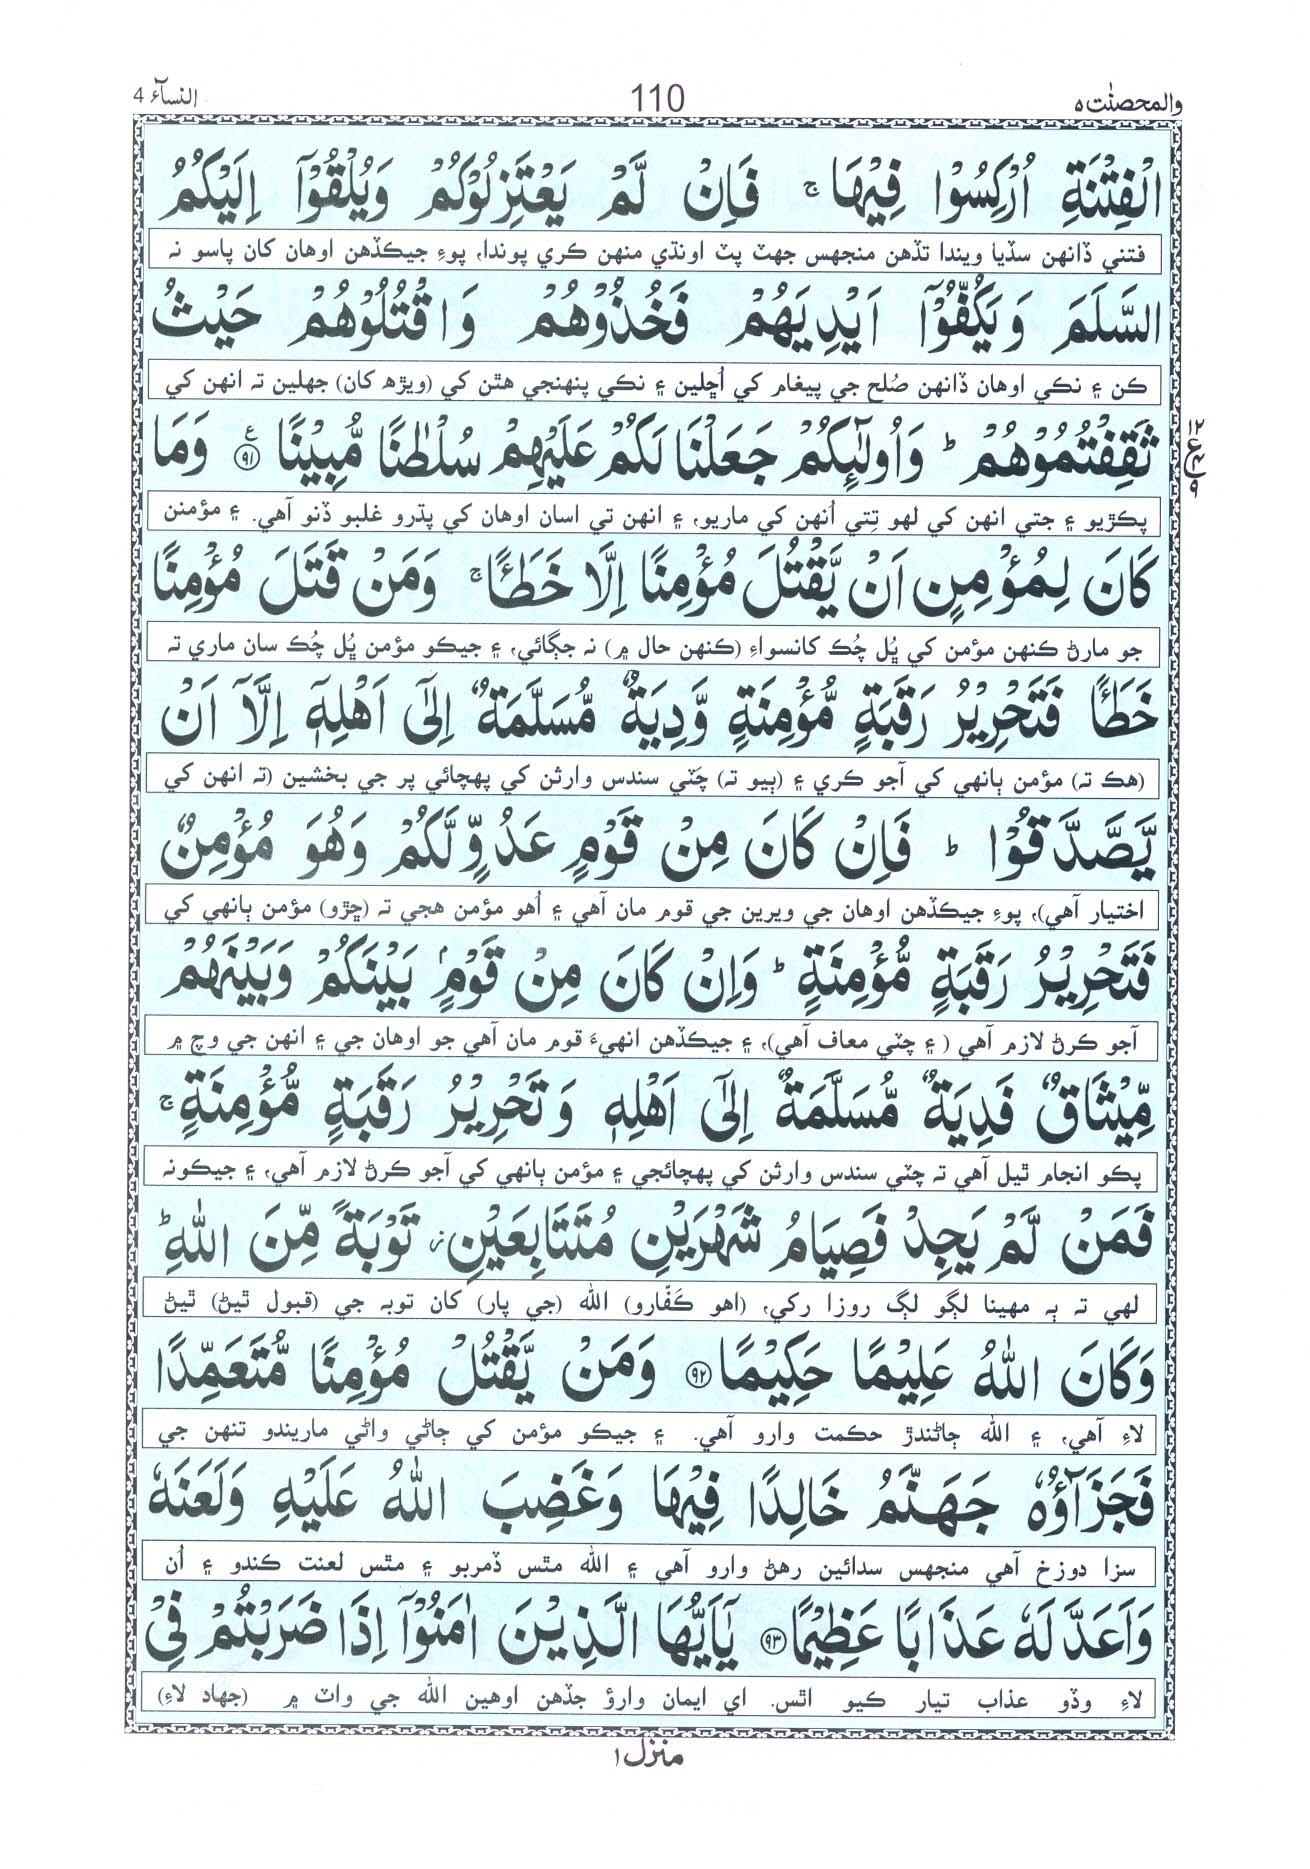 والمحصنٰت ٥
110
النسآء 4
الْفِتْنَةِ اُرْكِسُوْا فِيْهَا ۚ فَاِنْ لَّمْ يَعْتَزِلُوْكُمْ وَيُلْقُوْٓا اِلَيْكُمُ
فتني ڏانهن سڏيا ويندا تڏهن منجهس جهٽ پٽ اونڌي منهن ڪري پوندا، پوءِ جيڪڏهن اوهان کان پاسو نہ
السَّلَمَ وَيَكُفُّوْٓا اَيْدِيَهُمْ فَخُذُوْهُمْ وَاقْتُلُوْهُمْ حَيْثُ
ڪن ۽ نڪي اوهان ڏانهن صُلح جي پيغام کي اُڇلين ۽ نڪي پنهنجي هٿن کي (ويڙھ کان) جهلين تہ انهن کي
ثَقِفْتُمُوْهُمْ ؕ وَاُولٰٓئِكُمْ جَعَلْنَا لَكُمْ عَلَيْهِمْ سُلْطٰنًا مُّبِيْنًا ﴿۹۱﴾ ع وَمَا
۱۲ ع ۹
پڪڙيو ۽ جتي انهن کي لهو تِتي اُنهن کي ماريو، ۽ انهن تي اسان اوهان کي پڌرو غلبو ڏنو آهي. ۽ مؤمنن
كَانَ لِمُؤْمِنٍ اَنْ يَّقْتُلَ مُؤْمِنًا اِلَّا خَطَـًٔا ۚ وَمَنْ قَتَلَ مُؤْمِنًا
جو مارڻ ڪنهن مؤمن کي ڀُل چُڪ کانسواءِ (ڪنهن حال ۾) نہ جڳائي، ۽ جيڪو مؤمن ڀُل چُڪ سان ماري تہ
خَطَـًٔا فَتَحْرِيْرُ رَقَبَةٍ مُّؤْمِنَةٍ وَّدِيَةٌ مُّسَلَّمَةٌ اِلٰٓى اَهْلِهٖٓ اِلَّآ اَنْ
(هڪ تہ) مؤمن ٻانهي کي آجو ڪري ۽ (ٻيو تہ) چَٽي سندس وارثن کي پهچائي پر جي بخشين (تہ انهن کي
يَّصَّدَّقُوْا ؕ فَاِنْ كَانَ مِنْ قَوْمٍ عَدُوٍّ لَّكُمْ وَهُوَ مُؤْمِنٌ
اختيار آهي)، پوءِ جيڪڏهن اوهان جي ويرين جي قوم مان آهي ۽ اُهو مؤمن هجي تہ (ڇڙو) مؤمن ٻانهي کي
فَتَحْرِيْرُ رَقَبَةٍ مُّؤْمِنَةٍ ؕ وَاِنْ كَانَ مِنْ قَوْمٍۭ بَيْنَكُمْ وَبَيْنَهُمْ
آجو ڪرڻ لازم آهي ( ۽ چٽي معاف آهي)، ۽ جيڪڏهن انهيءَ قوم مان آهي جو اوهان جي ۽ انهن جي وچ ۾
مِّيْثَاقٌ فَدِيَةٌ مُّسَلَّمَةٌ اِلٰٓى اَهْلِهٖ وَتَحْرِيْرُ رَقَبَةٍ مُّؤْمِنَةٍ ۚ
پڪو انجام ٿيل آهي تہ چٽي سندس وارثن کي پهچائجي ۽ مؤمن ٻانهي کي آجو ڪرڻ لازم آهي، ۽ جيڪونہ
فَمَنْ لَّمْ يَجِدْ فَصِيَامُ شَهْرَيْنِ مُتَتَابِعَيْنِ ز تَوْبَةً مِّنَ اللّٰهِ ؕ
لهي تہ ٻہ مهينا لڳو لڳ روزا رکي، (اهو ڪَفّارو) الله (جي پار) کان توبہ جي (قبول ٿيڻ) ٿيڻ
وَكَانَ اللّٰهُ عَلِيْمًا حَكِيْمًا ﴿۹۲﴾ وَمَنْ يَّقْتُلْ مُؤْمِنًا مُّتَعَمِّدًا
لاءِ آهي، ۽ الله ڄاڻندڙ حڪمت وارو آهي. ۽ جيڪو مؤمن کي ڄاڻي واڻي ماريندو تنهن جي
فَجَزَآؤُهٗ جَهَنَّمُ خَالِدًا فِيْهَا وَغَضِبَ اللّٰهُ عَلَيْهِ وَلَعَنَهٗ
سزا دوزخ آهي منجهس سدائين رهڻ وارو آهي ۽ الله مٿس ڏمربو ۽ مٿس لعنت ڪندو ۽ اُن
وَاَعَدَّ لَهٗ عَذَابًا عَظِيْمًا ﴿۹۳﴾ يٰٓاَيُّهَا الَّذِيْنَ اٰمَنُوْٓا اِذَا ضَرَبْتُمْ فِيْ
لاءِ وڏو عذاب تيار ڪيو اٿس. اي ايمان وارؤ جڏهن اوهين الله جي واٽ ۾ (جهاد لاءِ)
منزل ۱